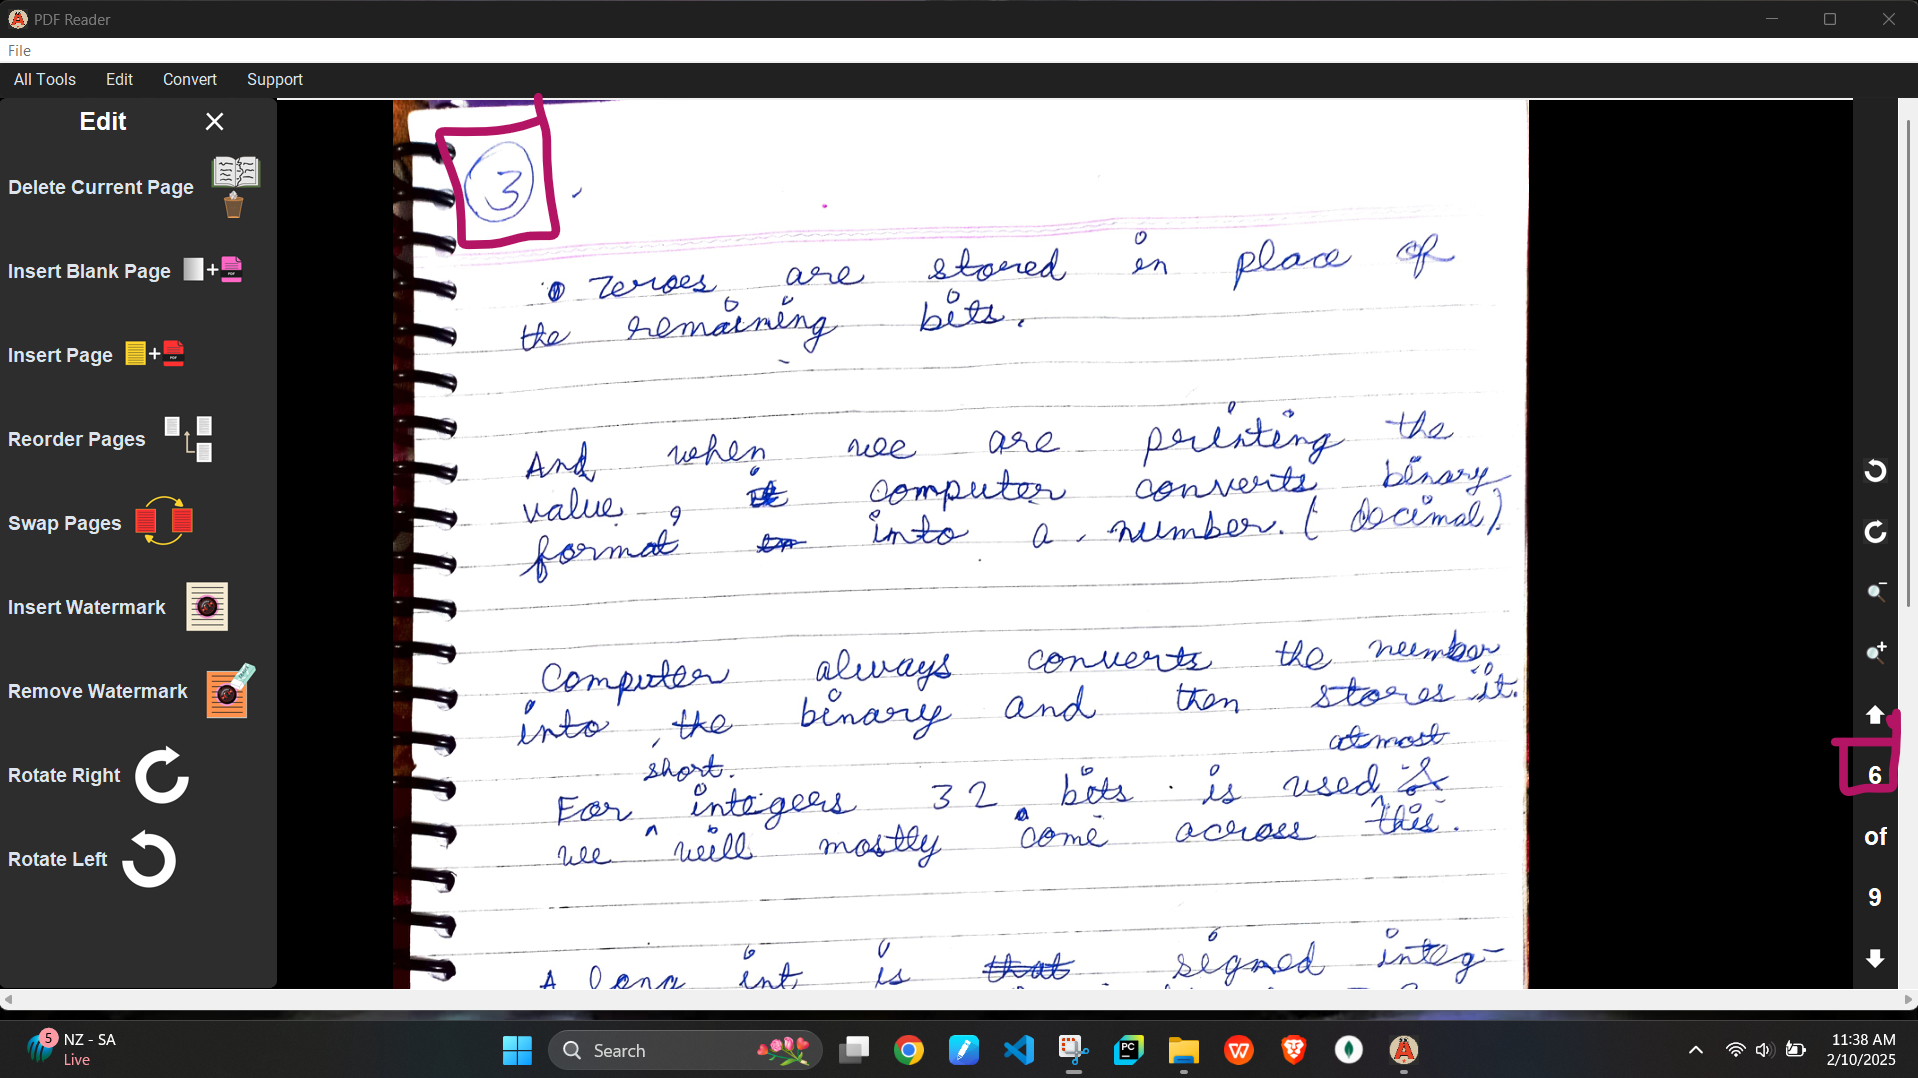 PDF Reader
File
All Tools Edit Convert Support
Edit
Delete Current Page
Insert Blank Page
Insert Page
Reorder Pages
Swap Pages
Insert Watermark
Remove Watermark
Rotate Right
Rotate Left
3
zeroes are stored in place of
the remaining bits.
And when we are printing the
value, computer converts binary
format into a number. (decimal).
Computer always converts the number
into the binary and then stores it.
short. atmost
For integers 32 bits is used &
we will mostly come across this.
A long int is that signed integ-
6
of
9
5
NZ - SA
Live
Search
PC
11:38 AM
2/10/2025